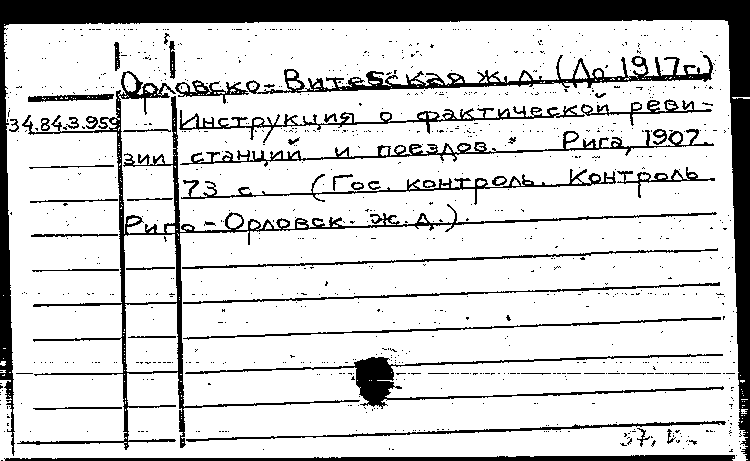 Орловско-Витебская ж.д. (До 1917г.)
34.84.3.959 Инструкция о фактической реви-
зии станций и поездов. Рига, 1907.
73 с. (Гос. контроль. Контроль
Риго-Орловск. ж.д.).